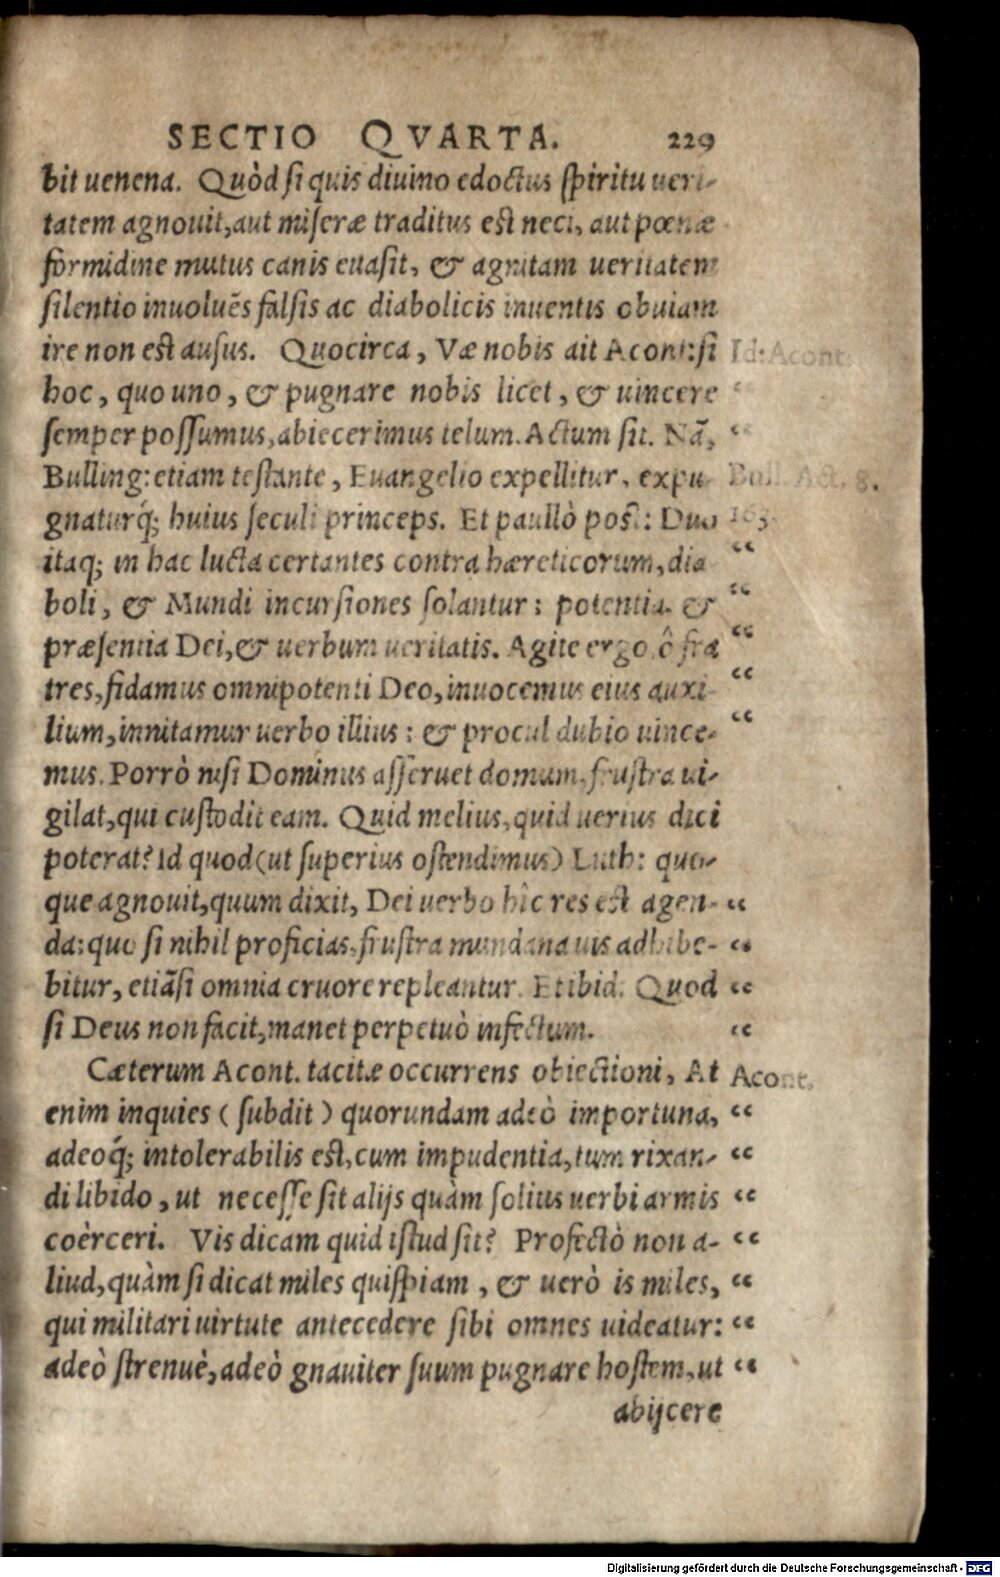 SECTIO QVARTA. 229
bit uenena. Quòd si quis diuino edoctus spiritu ueri-
tatem agnouit, aut miseræ traditus est neci, aut pœnæ
formidine mutus canis euasit, & agnitam ueritatem
silentio inuoluẽs falsis ac diabolicis inuentis obuiam
ire non est ausus. Quocirca, Væ nobis ait Acont: si Id: Acont:
hoc, quo uno, & pugnare nobis licet, & uincere “
semper possumus, abiecerimus telum. Actum sit. Nã, “
Bulling: etiam testante, Euangelio expellitur, expu- Bull. Act. 8.
gnaturq́; huius seculi princeps. Et paullò post: Duo 163.
itaq; in hac lucta certantes contra hæreticorum, dia “
boli, & Mundi incursiones solantur: potentia & “
præsentia Dei, & uerbum ueritatis. Agite ergo ô fra “
tres, fidamus omnipotenti Deo, inuocemus eius auxi- “
lium, innitamur uerbo illius: & procul dubio uince- “
mus. Porrò nisi Dominus asseruet domum, frustra ui-
gilat, qui custodit eam. Quid melius, quid uerius dici
poterat? Id quod (ut superius ostendimus) Luth: quo-
que agnouit, quum dixit, Dei uerbo hîc res est agen- “
da: quo si nihil proficias, frustra mundana uis adhibe- “
bitur, etiãsi omnia cruore repleantur. Et ibid: Quod “
si Deus non facit, manet perpetuò infectum. “
Cæterum Acont. tacitæ occurrens obiectioni, At Acont.
enim inquies ( subdit ) quorundam adeò importuna, “
adeoq́; intolerabilis est, cum impudentia, tum rixan- “
di libido, ut necesse sit alijs quàm solius uerbi armis “
coèrceri. Vis dicam quid istud sit? Profectò non a- “
liud, quàm si dicat miles quispiam, & uerò is miles, “
qui militari uirtute antecedere sibi omnes uideatur: “
adeò strenuè, adeò gnauiter suum pugnare hostem, ut “
abijcere
Digitalisierung gefördert durch die Deutsche Forschungsgemeinschaft - DFG